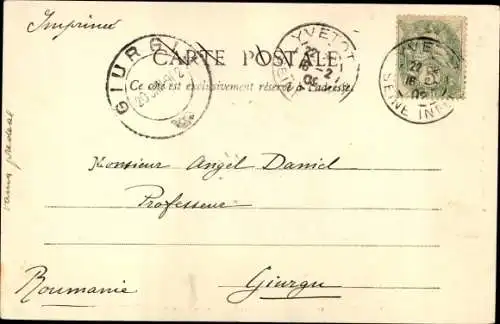 Imprimé
CARTE POSTALE
Ce côté est exclusivement réservé à l'adresse.
GIURGIU
YVETOT
YVETOT
SEINE INF
Monsieur Angel Daniel
Professeur
Roumanie
Giurgu